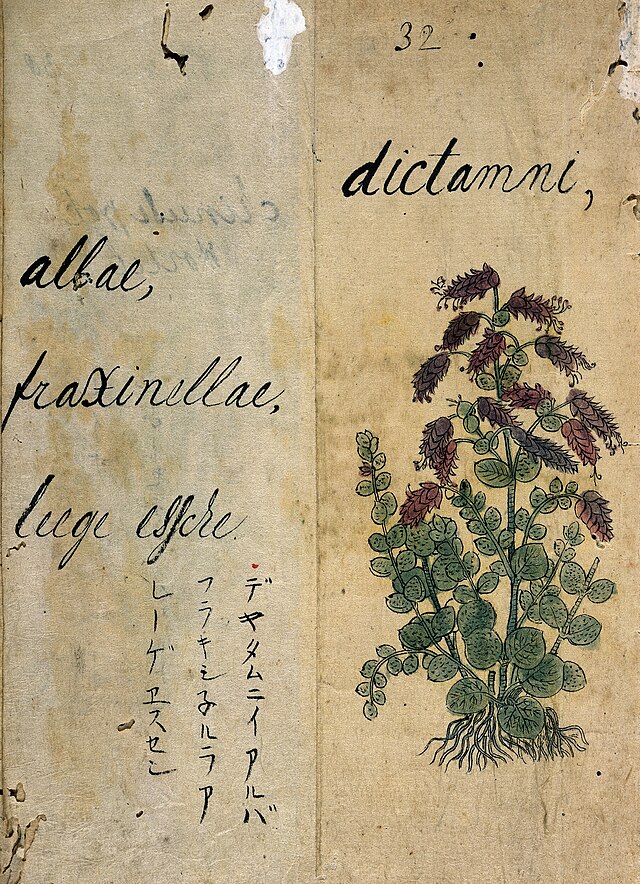 32
dictamni,
albae,
fraxinellae,
liege essche.
デヤタムニイアルバ
フラキシ子ルラア
レーゲヱスセン